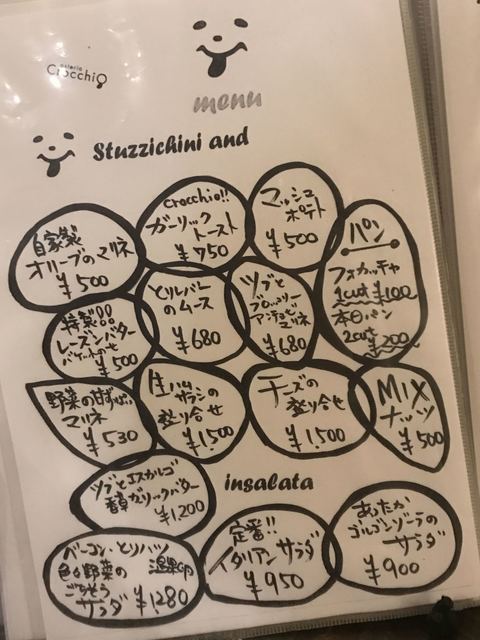 Osteria
Crocchio
menu
Stuzzichini and
自家製
オリーブのマリネ
¥500
Crocchio!!
ガーリック
トースト
¥750
マッシュ
ポテト
¥500
パン
フォカッチャ
1cut ¥100
本日パン
2cut
¥200
特製!!
レーズンバター
バケットのせ
¥500
とりレバー
のムース
¥680
ツブと
ブロッコリー
アンチョビマリネ
¥680
野菜の甘ずっぱい
マリネ
¥530
生ハム
サラミの
盛り合せ
¥1,500
チーズの
盛り合せ
¥1,500
MIX
ナッツ
¥500
ツブとエスカルゴ
香草ガーリックバター
¥1,200
insalata
ベーコン、とりハツ
色々野菜の
ごちそう
サラダ
¥1280
定番!!
イタリアンサラダ
¥950
あったか
ゴルゴンゾーラの
サラダ
¥900